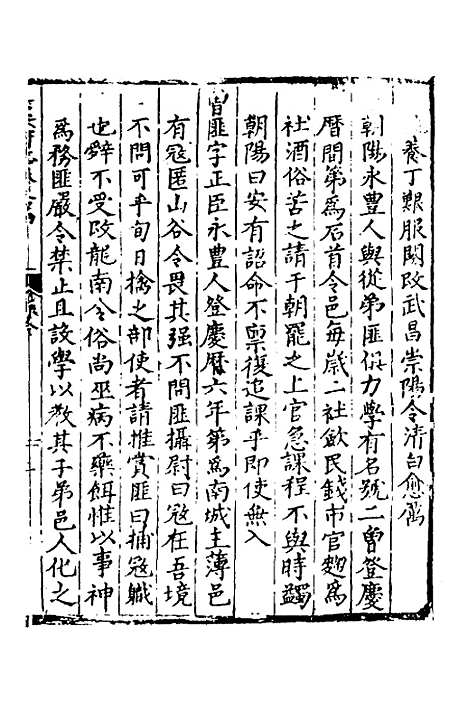 養丁艱服闋改武昌崇陽令清白愈厲
朝陽永豐人與從弟匪俱力學有名號二曾登慶
曆間第爲石首令邑每歲二社歛民錢市官麴爲
社酒俗苦之請于朝罷之上官急課程不與時蠲
朝陽曰安有詔命不禀復追課乎即使無入
曾匪字正臣永豐人登慶曆六年第爲南城主薄邑
有冦匿山谷令畏其强不問匪攝尉曰冦在吾境
不問可乎旬日擒之部使者請推賞匪曰捕冦職
也辤不受改龍南令俗尚巫病不藥餌惟以事神
爲務匪嚴令禁止且設學以教其子弟邑人化之